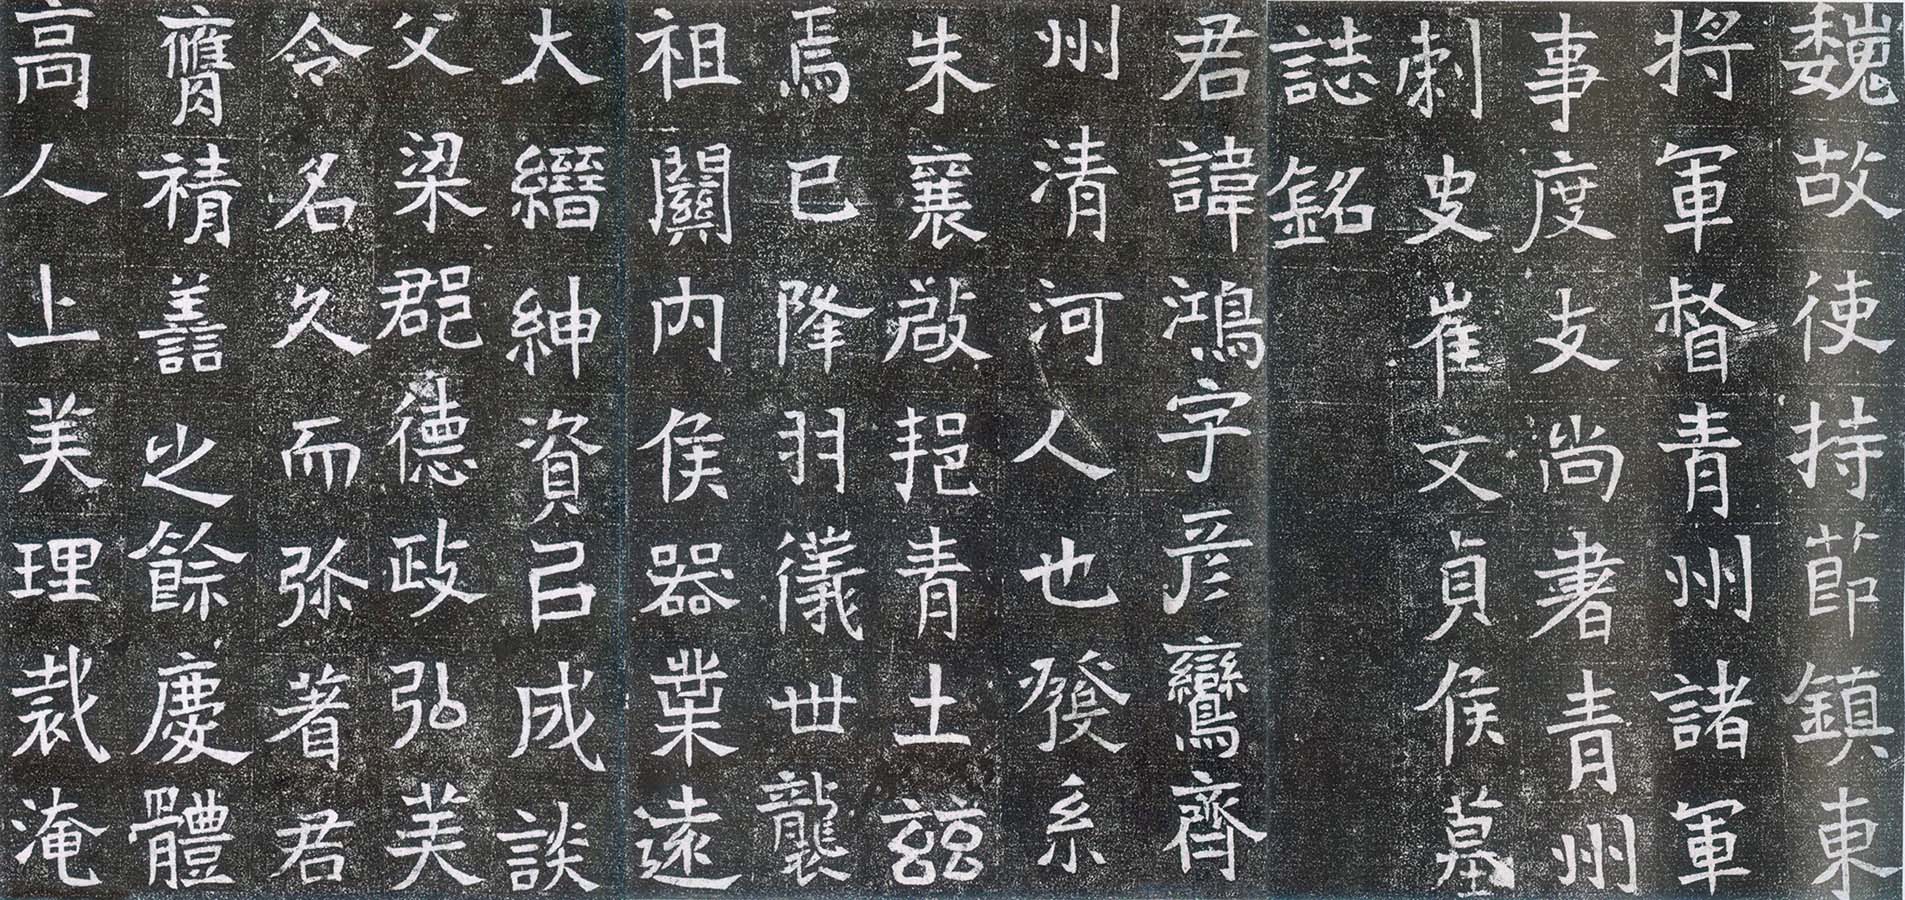 魏故使持節鎮東
將軍督青州諸軍
事度支尚書青州
刺史崔文貞侯墓
誌銘
君諱鴻字彦鸞齊
州清河人也發系
朱襄啟邦青土茲
焉已降羽儀世襲
祖關內侯器業遠
大縉紳資以成談
父梁郡德政弘美
令名久而弥著君
膺積善之餘慶體
高人上美理裁淹